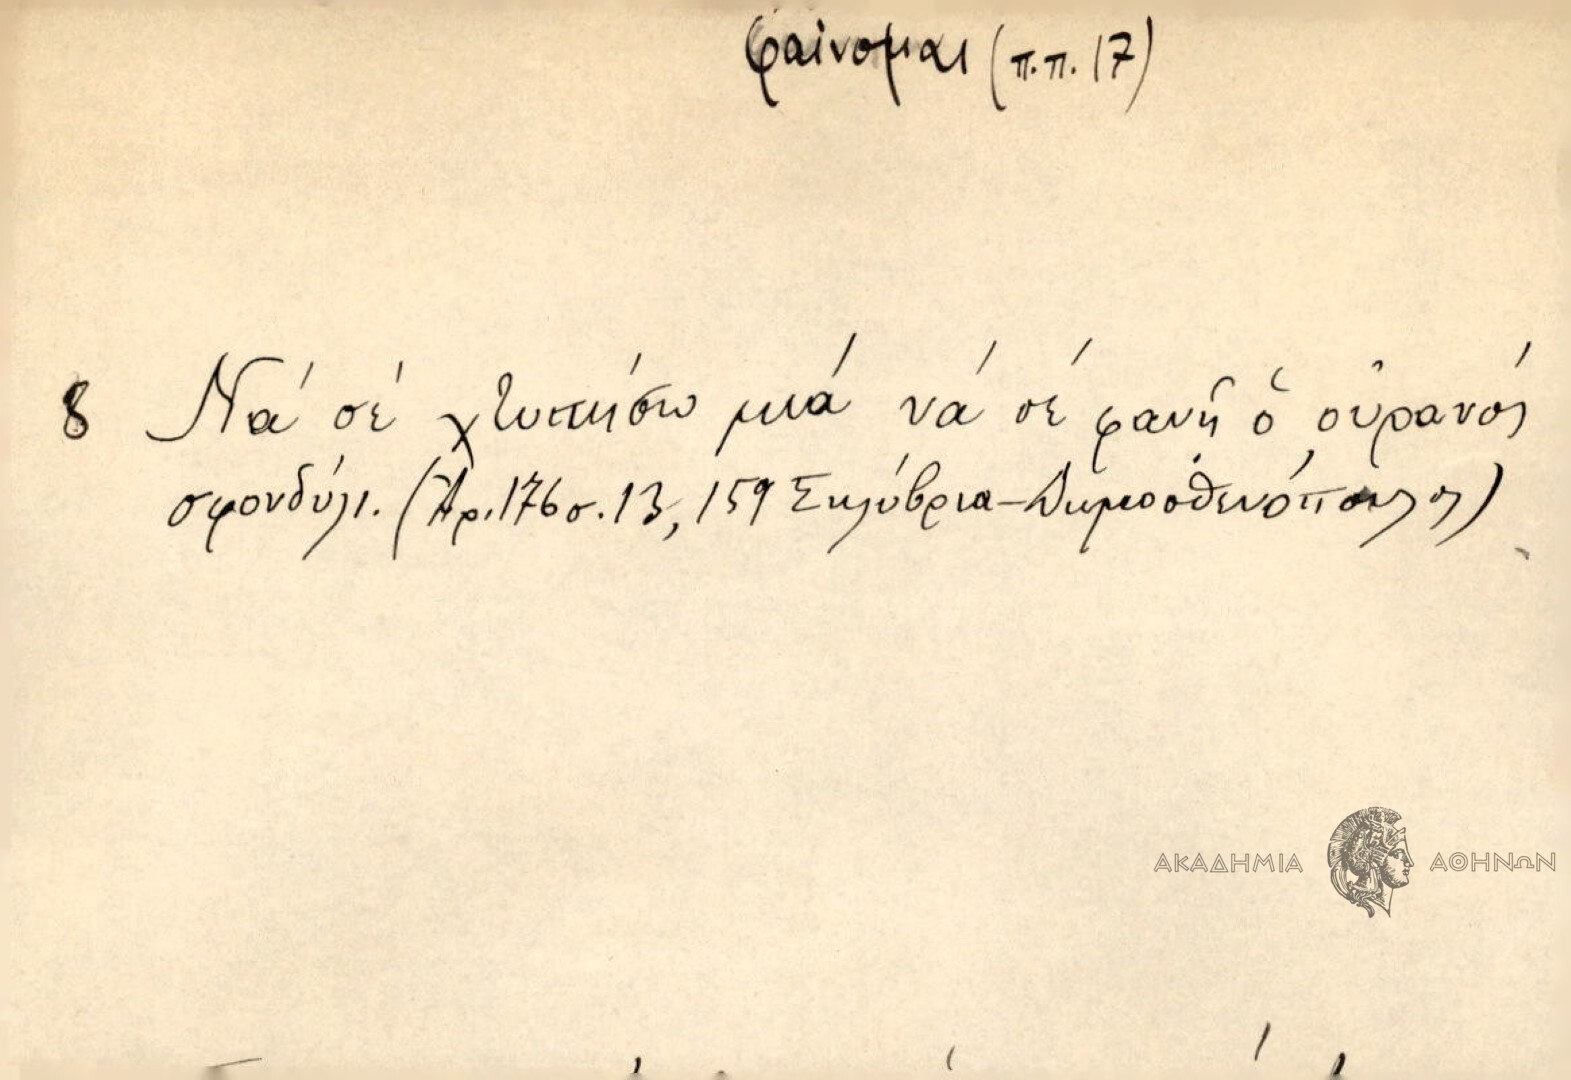 φαίνομαι (π.π. 17)
8 Νά σέ χτυπήσω μιά νά σέ φανῆ ὁ οὐρανός
σφονδύλι. (Ἀρ. 176 σ. 13, 159 Σηλύβρια – Δημοσθενόπουλος)
ΑΚΑΔΗΜΙΑ ΑΘΗΝΩΝ